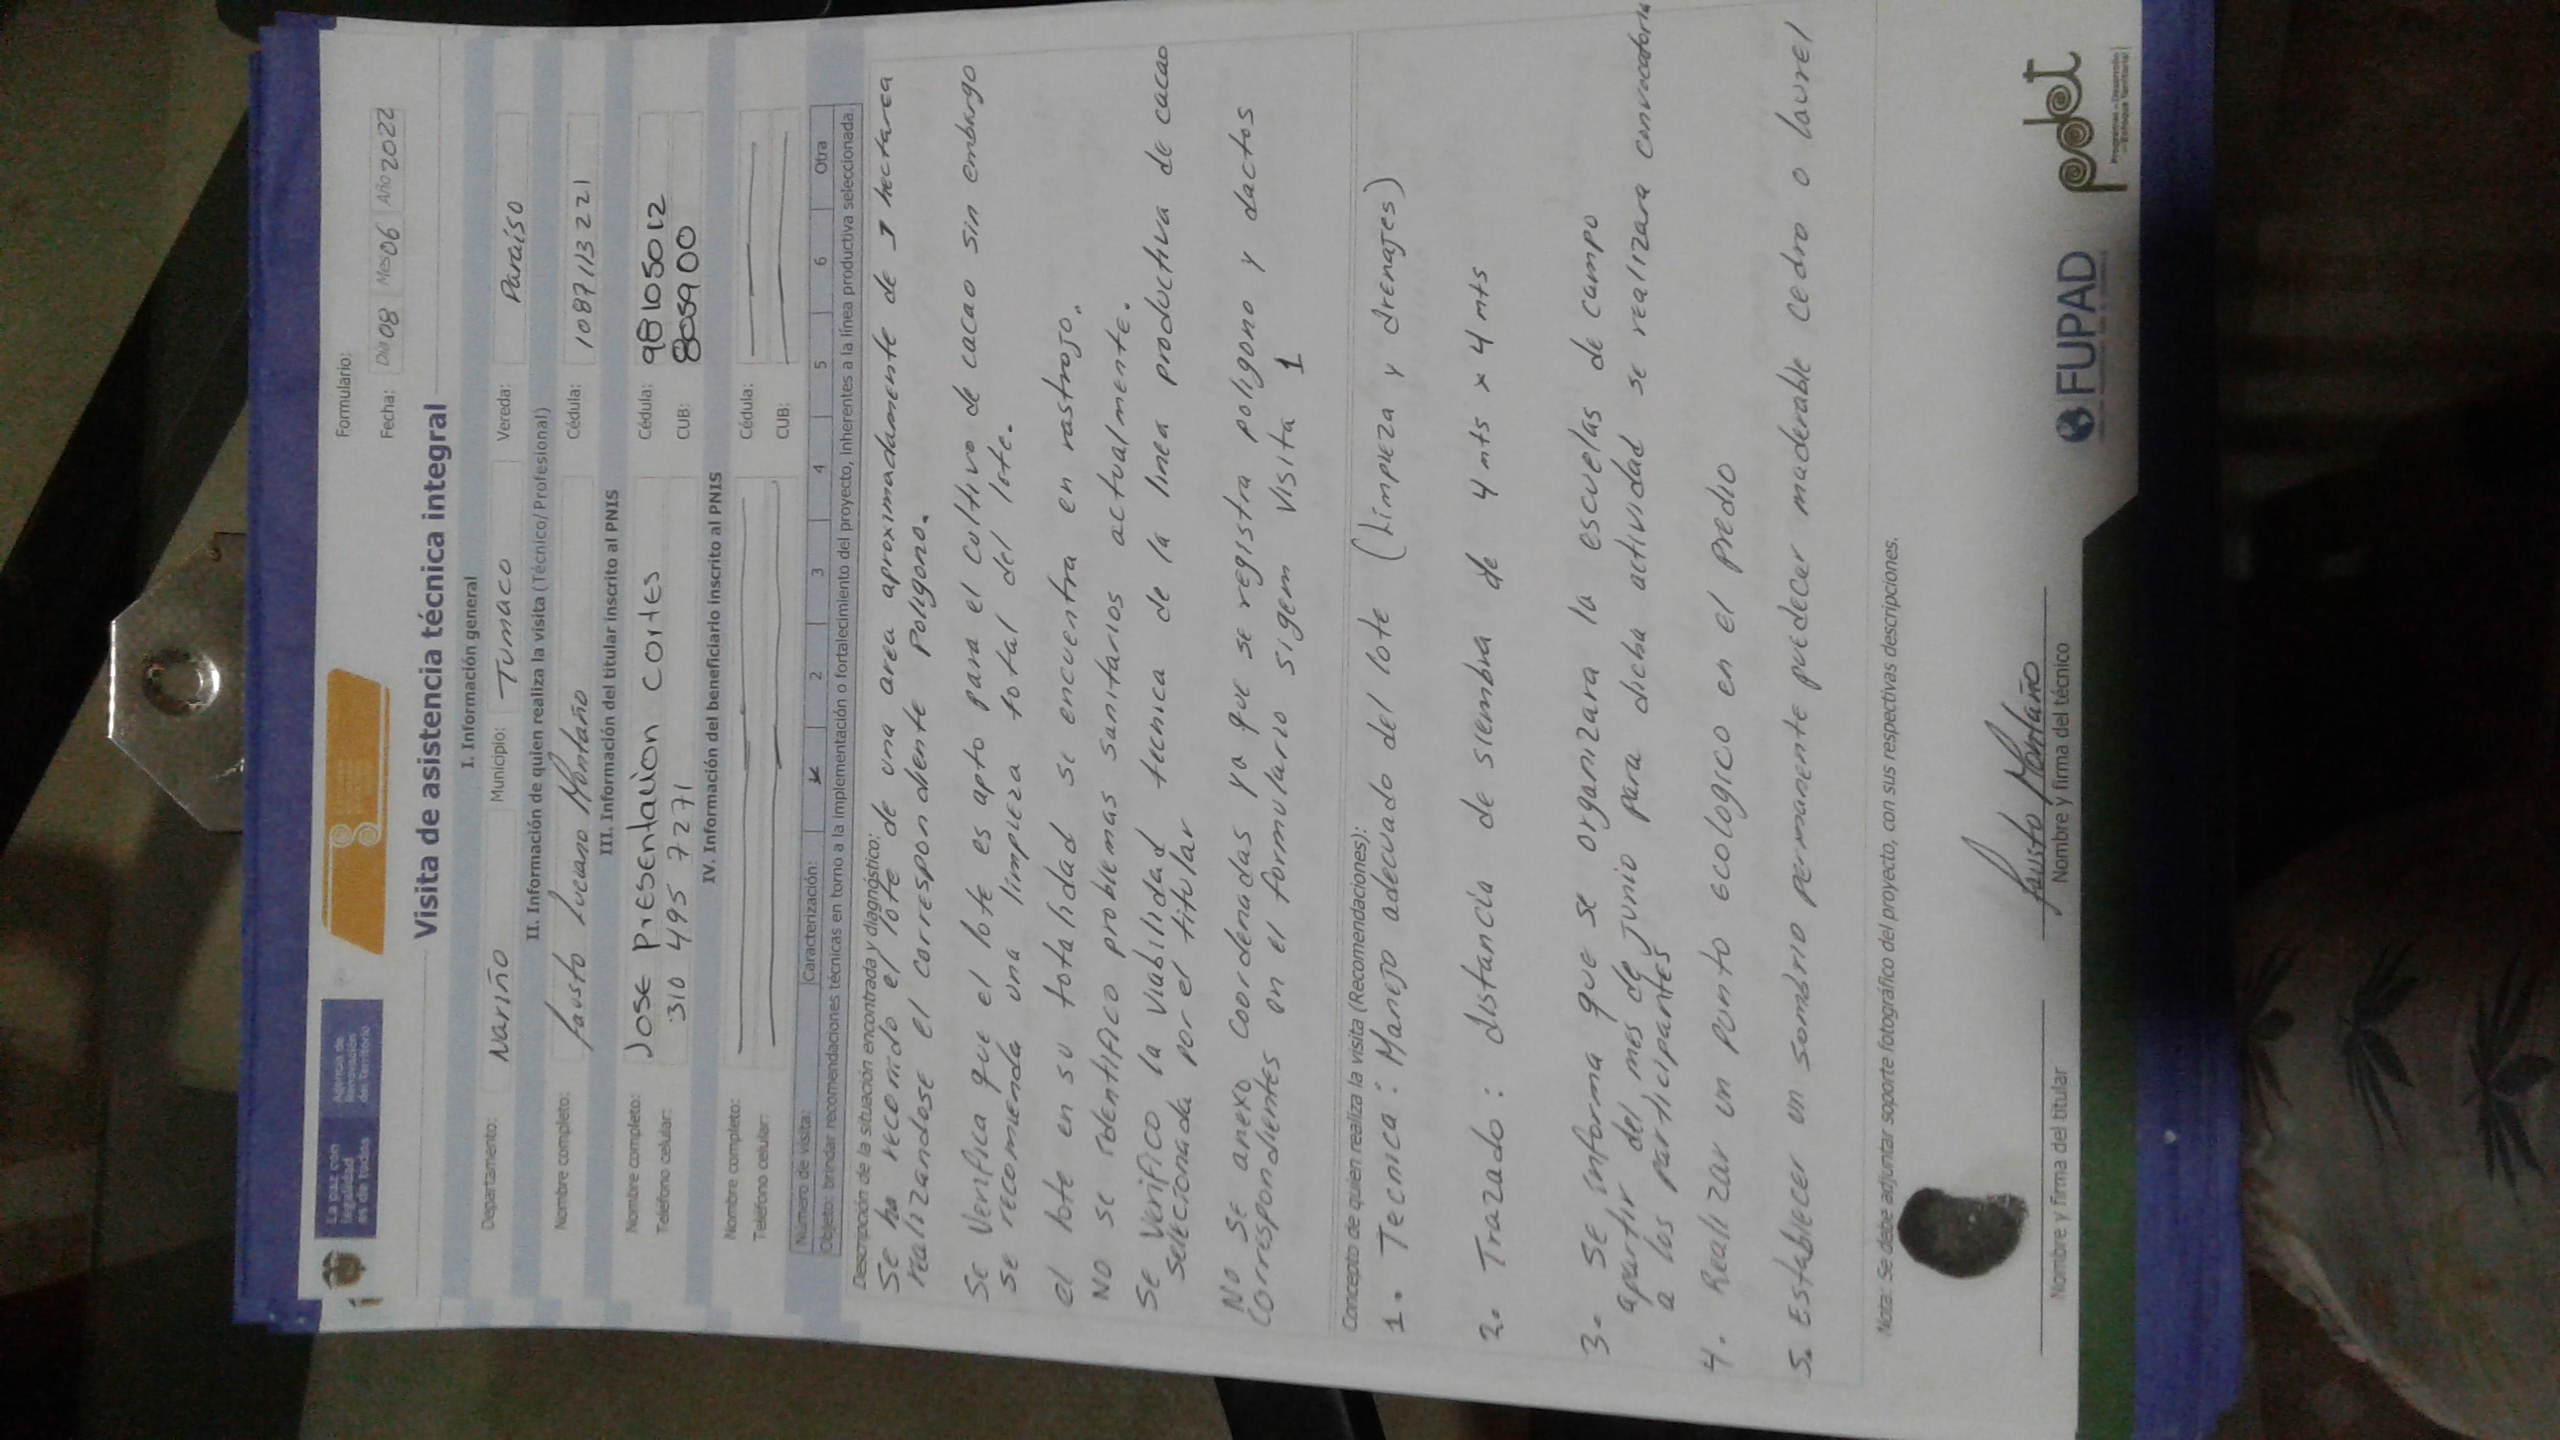 La paz con
legalidad
es de todos
Agencia de
Renovación
del Territorio
Formulario:
Fecha: Día 08 Mes 06 Año 2022
Visita de asistencia técnica integral
I. Información general
Departamento: Nariño Municipio: Tumaco Vereda: Paraíso
II. Información de quien realiza la visita (Técnico/Profesional)
Nombre completo: fausto Luciano Montaño Cédula: 1087113221
III. Información del titular inscrito al PNIS
Nombre completo: Jose Presentacion Cortes Cédula: 98105012
Teléfono celular: 310 495 7271 CUB: 8059100
IV. Información del beneficiario inscrito al PNIS
Nombre completo: Cédula:
Teléfono celular: CUB:
Número de visita: Caracterización: 1 2 3 4 5 6 Otra
Objeto: brindar recomendaciones técnicas en torno a la implementación o fortalecimiento del proyecto, inherentes a la línea productiva seleccionada.
Descripción de la situación encontrada y diagnóstico:
Se ha recorrido el lote de una area aproximadamente de 1 hectarea
realizandose el correspondiente Poligono.
Se Verifica que el lote es apto para el cultivo de cacao sin embargo
se recomienda una limpieza total del lote.
el lote en su totalidad se encuentra en rastrojo.
NO se identifico problemas sanitarios actualmente.
Se Verifico la viabilidad tecnica de la linea productiva de cacao
selecionada por el titular
No se anexo coordenadas ya que se registra poligono y dactos
correspondientes en el formulario sigem visita 1
Concepto de quien realiza la visita (Recomendaciones):
1. Tecnica: Manejo adecuado del lote (Limpieza y drenajes)
2. Trazado: distancia de siembra de 4 mts x 4 mts
3. Se informa que se organizara la escuelas de campo
apartir del mes de junio para dicha actividad se realizara convocatoria
a los participantes
4. Realizar un punto ecologico en el predio
5. Establecer un sombrio permanente puedecer maderable cedro o laurel
Nota: Se debe adjuntar soporte fotográfico del proyecto, con sus respectivas descripciones.
fausto Montaño
Nombre y firma del titular Nombre y firma del técnico
FUPAD
pdet
Programas de Desarrollo
con Enfoque Territorial